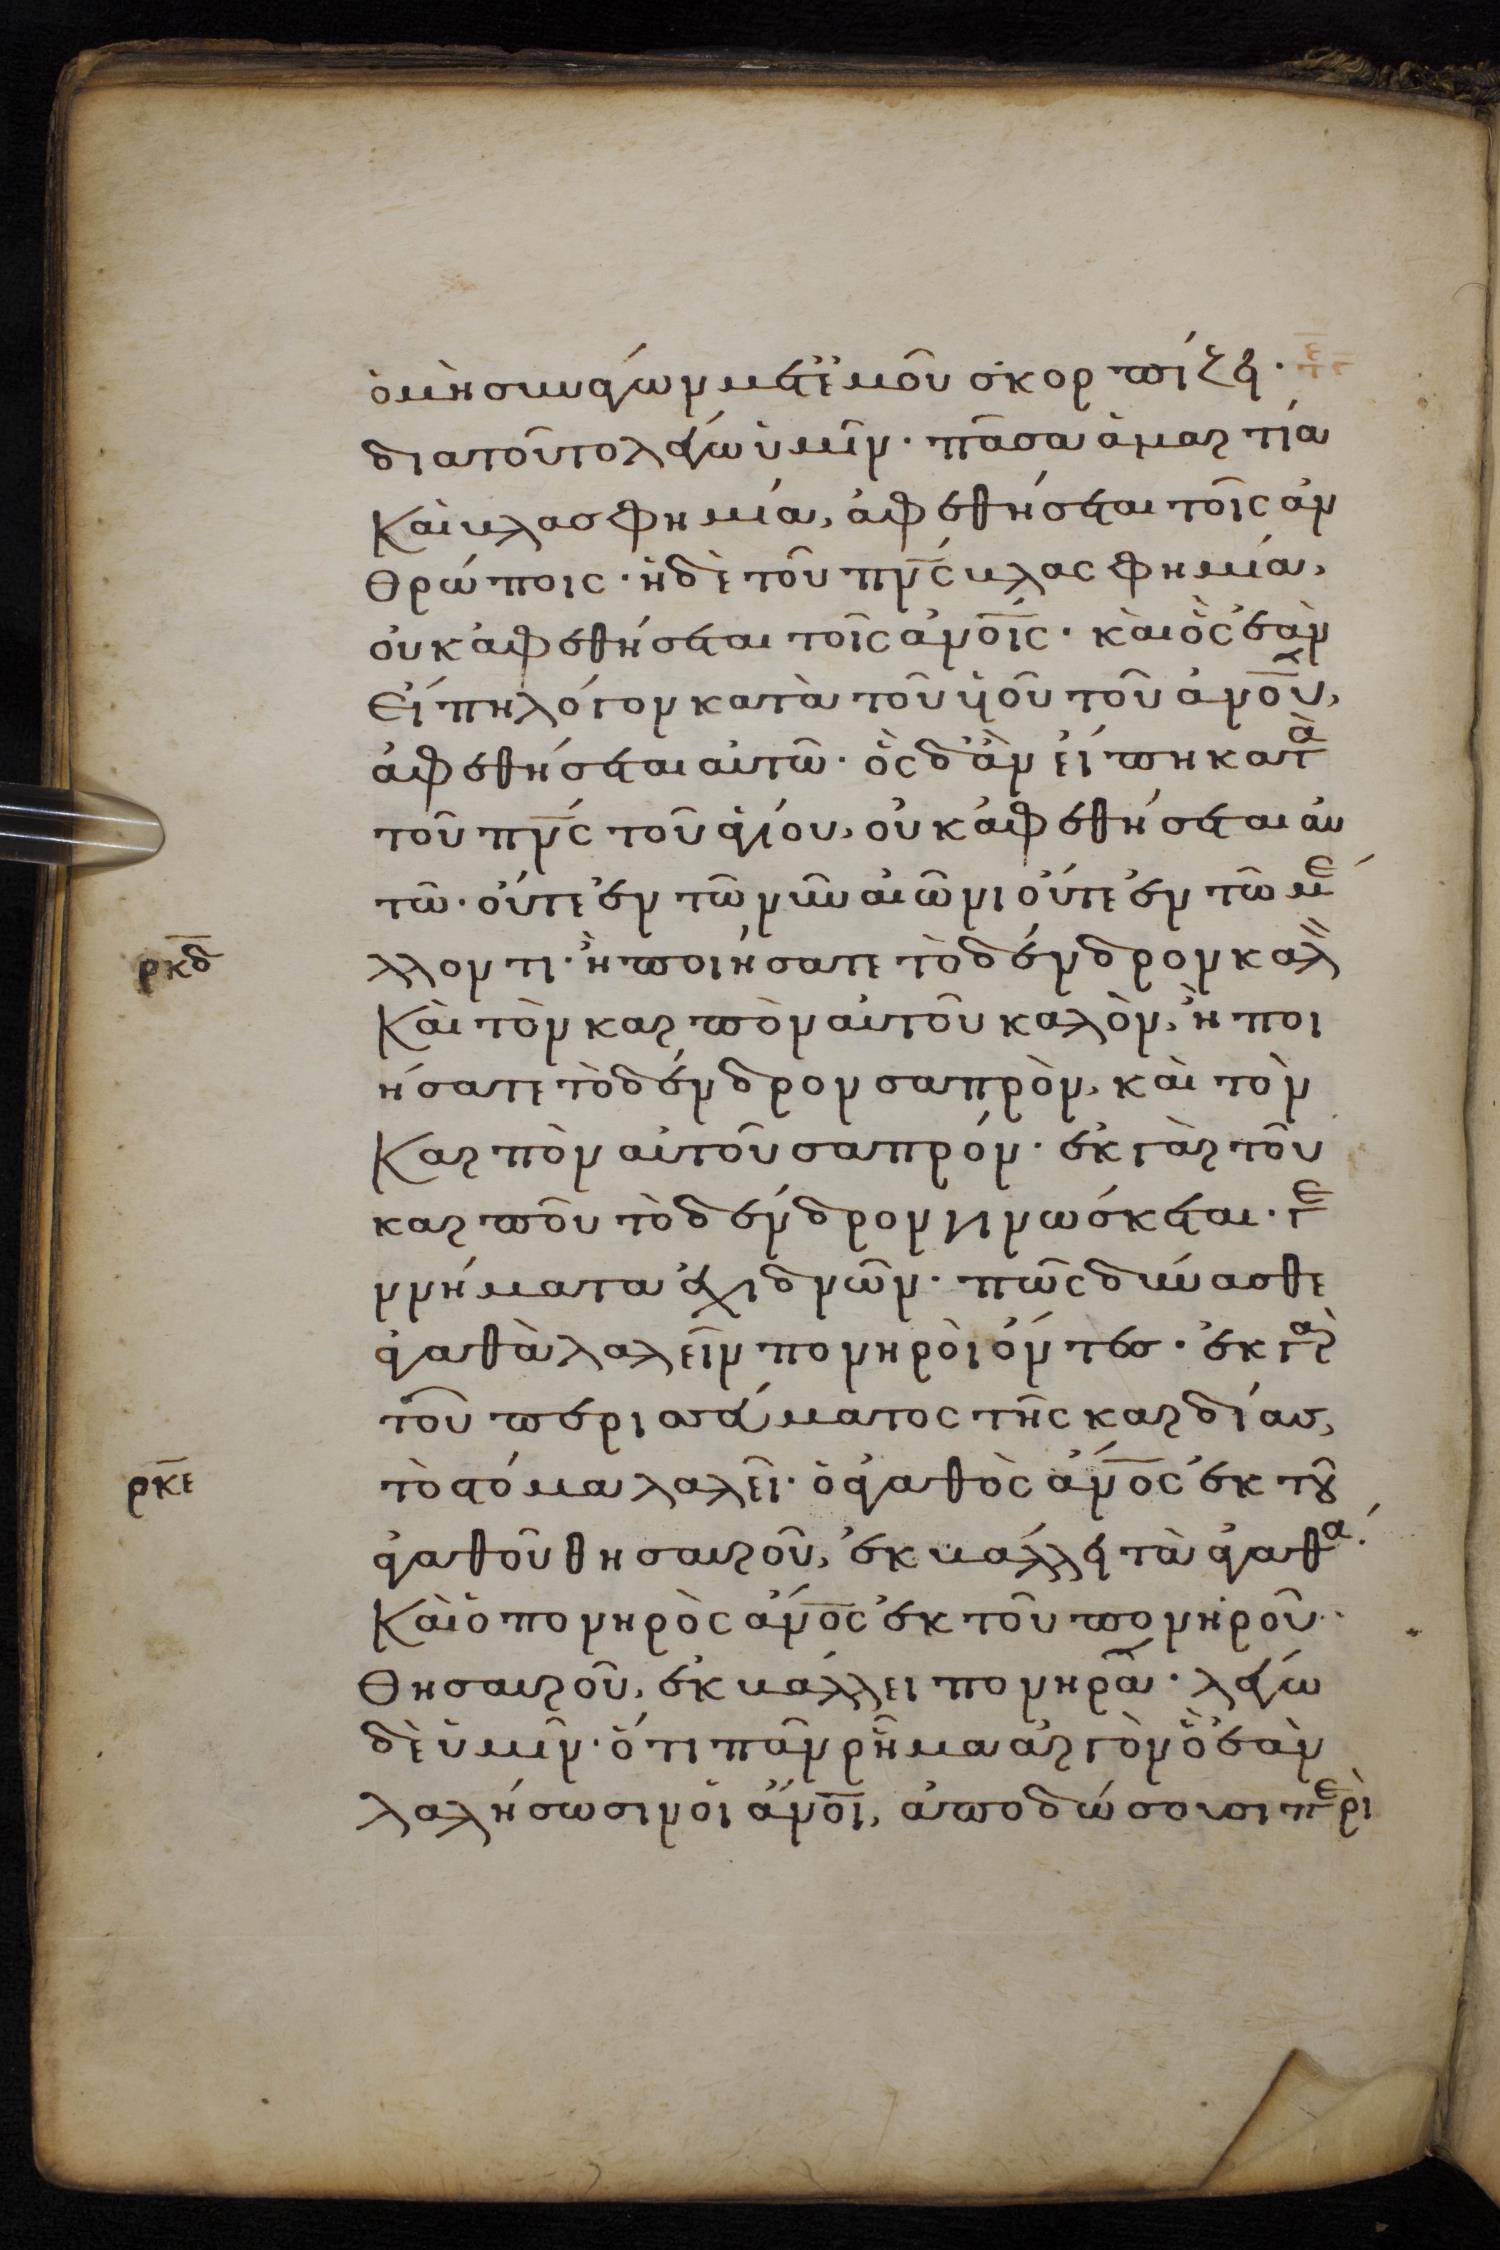 ὁ μὴ συνάγων μετ' ἐμοῦ σκορπίζει·
διατοῦτο λέγω ὑμῖν· πᾶσα ἁμαρτία
Καὶ βλασφημία, ἀφεθήσεται τοῖς ἀν
θρώποις· ἡ δὲ τοῦ πνς βλασφημία,
οὐκ ἀφεθήσεται τοῖς ἀνοις· καὶ ὃς ἐὰν
Εἴπη λόγον κατὰ τοῦ υἱοῦ τοῦ ἀνου,
ἀφεθήσεται αὐτῶ· ὃς δ' ἂν εἴπη κατὰ
τοῦ πνς τοῦ ἁγίου, οὐκ ἀφεθήσεται αὐ
τῶ· οὔτε ἐν τῶ νῦν αἰῶνι οὔτε ἐν τῶ μέ
ρκδ λλοντι· ἢ ποιήσατε τὸ δένδρον καλὸν
Καὶ τὸν καρπὸν αὐτοῦ καλὸν, ἢ ποι
ήσατε τὸ δένδρον σαπρὸν, καὶ τὸν
Καρπὸν αὐτοῦ σαπρόν· ἐκ γὰρ τοῦ
καρποῦ τὸ δένδρον γινώσκεται· γε
ννήματα ἐχιδνῶν· πῶς δύνασθε
ἀγαθὰ λαλεῖν πονηροὶ ὄντες· ἐκ γὰρ
τοῦ περισσεύματος τῆς καρδίας,
ρκε τὸ στόμα λαλεῖ· ὁ ἀγαθὸς ἄνος ἐκ τοῦ
ἀγαθοῦ θησαυροῦ, ἐκβάλλει τὰ ἀγαθά·
Καὶ ὁ πονηρὸς ἄνος ἐκ τοῦ πονηροῦ
Θησαυροῦ, ἐκβάλλει πονηρά· λέγω
δὲ ὑμῖν· ὅτι πᾶν ῥῆμα ἀργὸν ὃ ἐὰν
λαλήσωσιν οἱ ἄνοι, ἀποδώσουσι περὶ